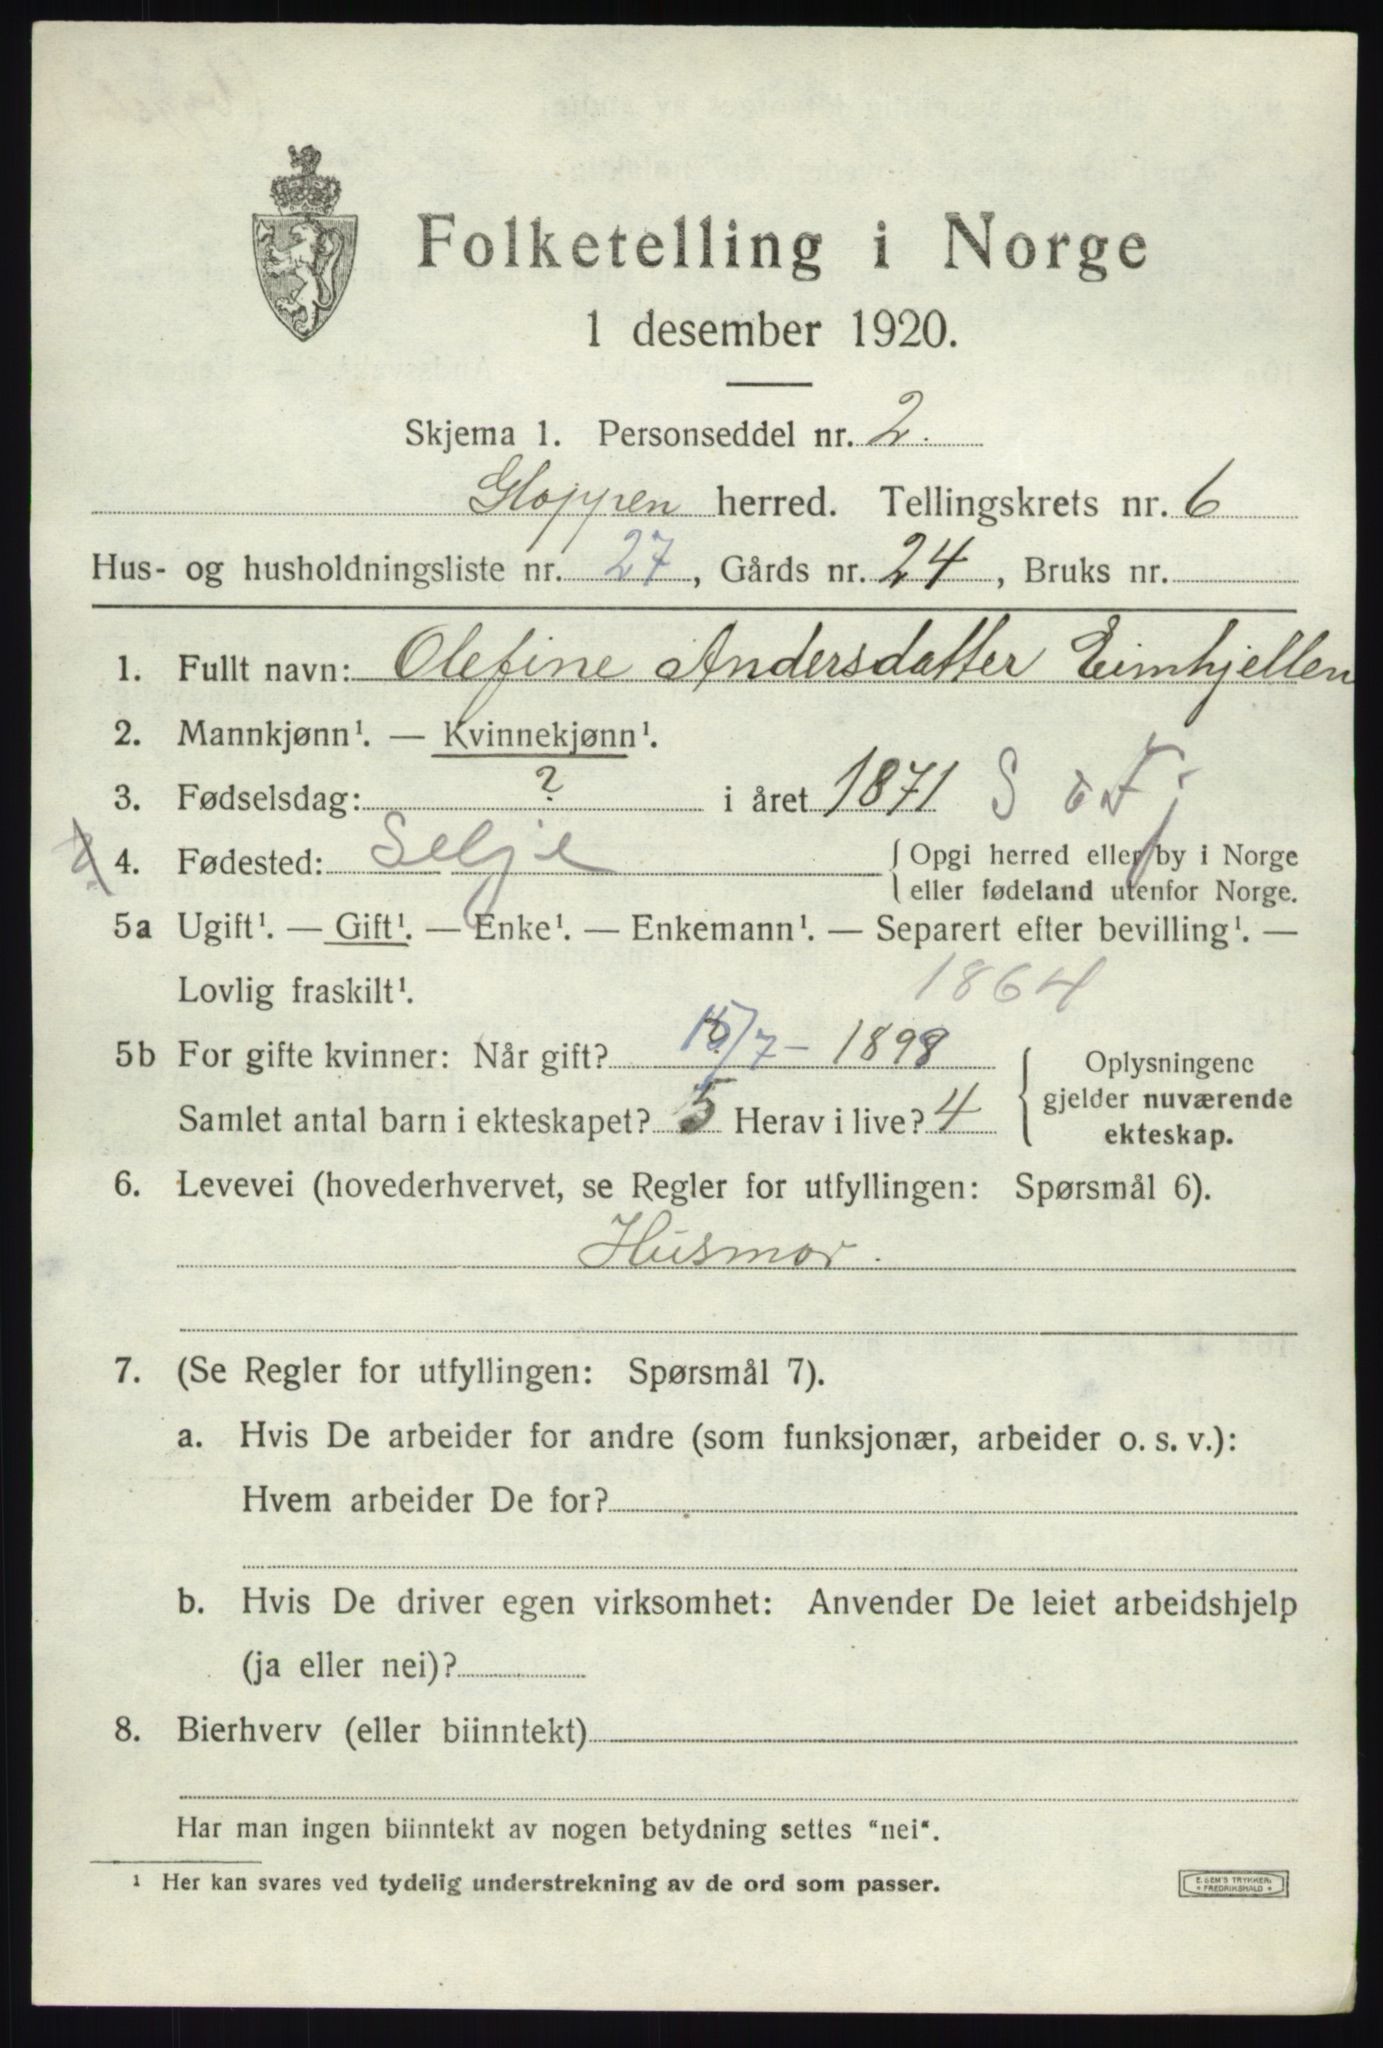 Folketelling i Norge
1 desember 1920.
Skjema 1. Personseddel nr. 2.
Gloppen herred. Tellingskrets nr. 6
Hus- og husholdningsliste nr. 27, Gårds nr. 24, Bruks nr.
1. Fullt navn: Olefine Andersdatter Eimhjellen
2. Mannkjønn¹. — Kvinnekjønn¹.
3. Fødselsdag: ? i året 1871 S o Fj
4. Fødested: Selje { Opgi herred eller by i Norge
eller fødeland utenfor Norge.
5a Ugift¹. — Gift¹. — Enke¹. — Enkemann¹. — Separert efter bevilling¹. —
Lovlig fraskilt¹. 1864
5b For gifte kvinner: Når gift? /7 – 1898 { Oplysningene
Samlet antal barn i ekteskapet? 5 Herav i live? 4 gjelder nuværende
ekteskap.
6. Levevei (hovederhvervet, se Regler for utfyllingen: Spørsmål 6).
Husmor.
7. (Se Regler for utfyllingen: Spørsmål 7).
a. Hvis De arbeider for andre (som funksjonær, arbeider o. s. v.):
Hvem arbeider De for?
b. Hvis De driver egen virksomhet: Anvender De leiet arbeidshjelp
(ja eller nei)?
8. Bierhverv (eller biinntekt)
Har man ingen biinntekt av nogen betydning settes "nei".
¹ Her kan svares ved tydelig understrekning av de ord som passer.
E. SEM'S TRYKKERI
FREDRIKSHALD